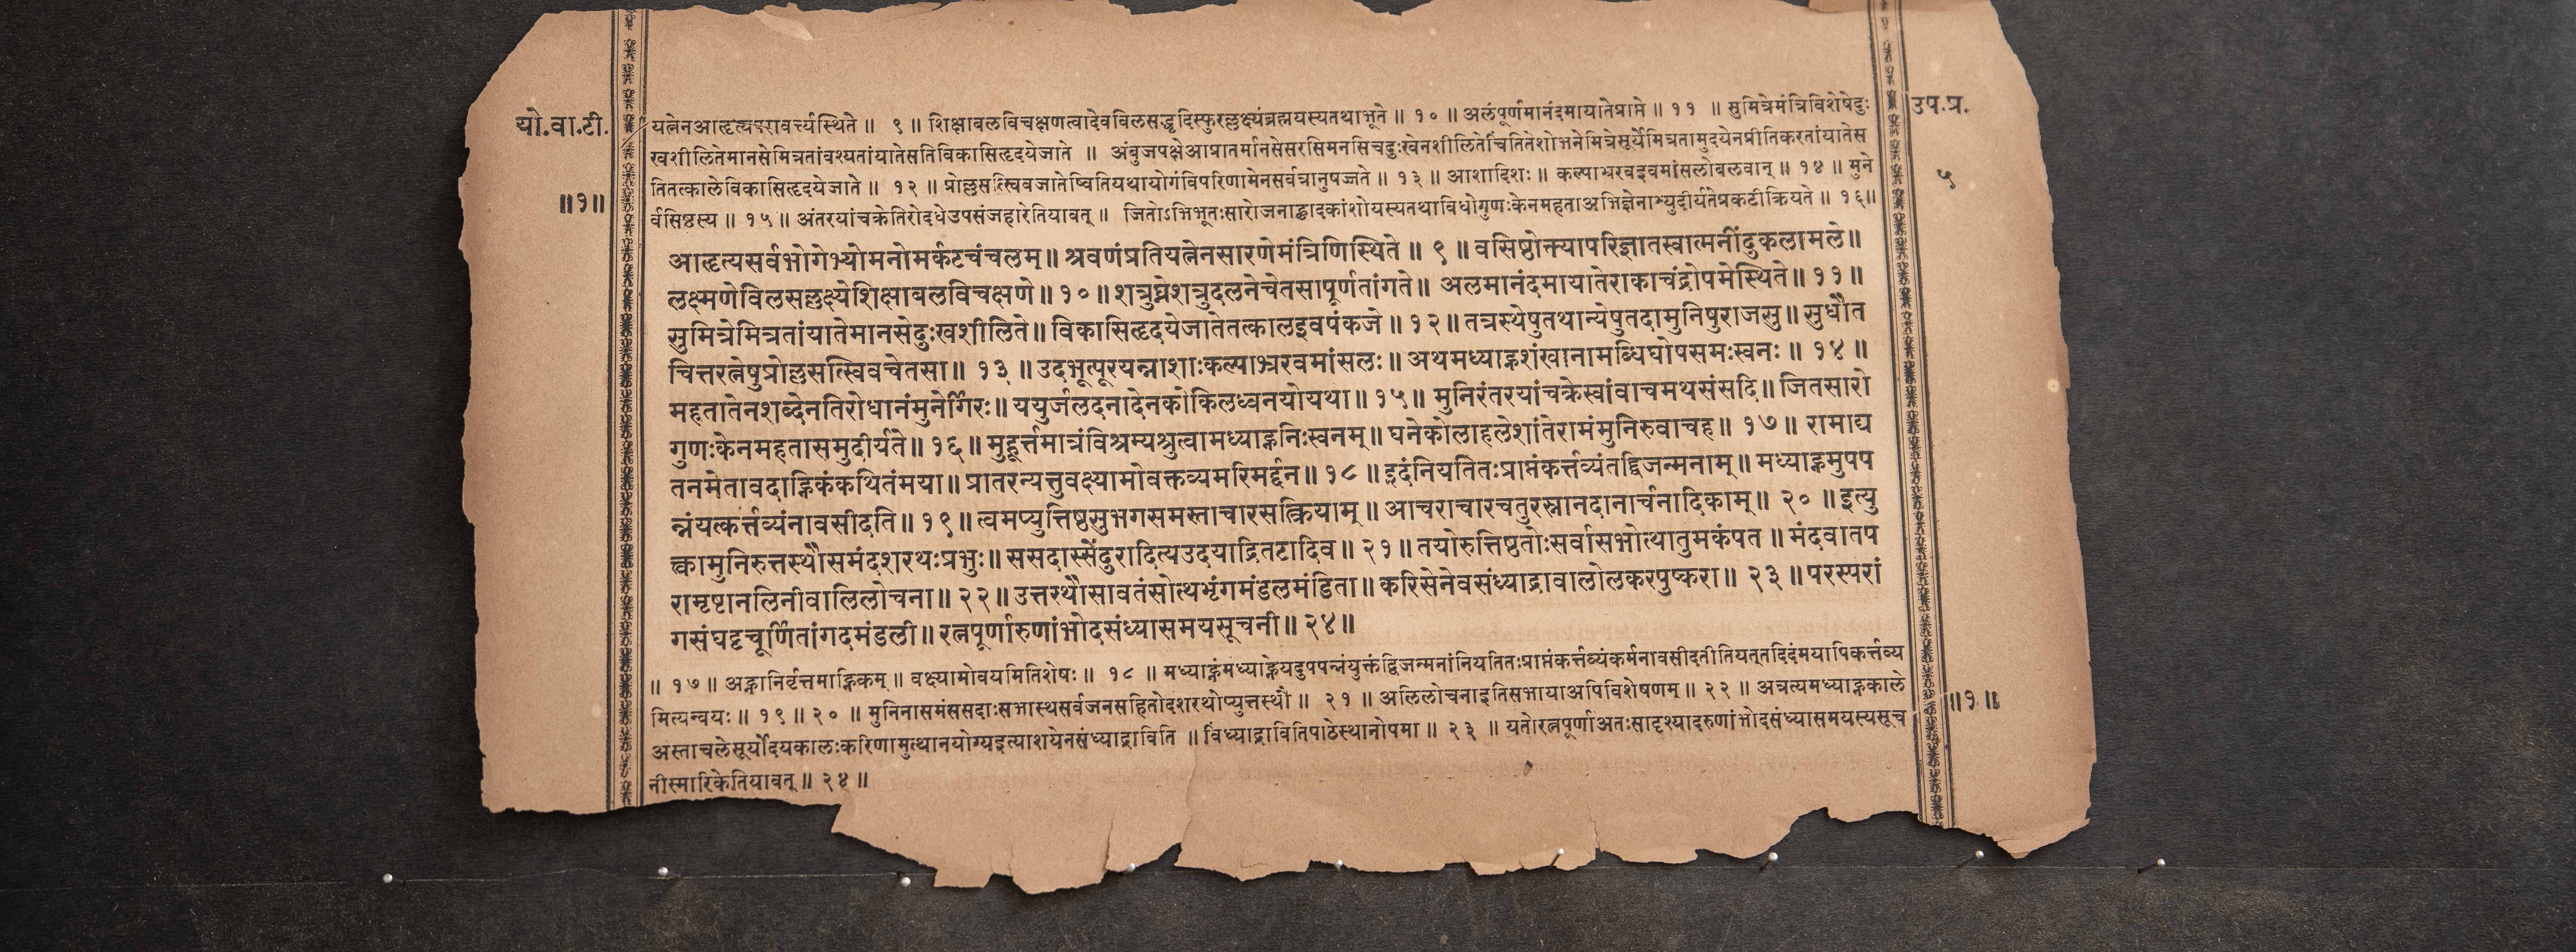 यो.वा.टी.
॥१॥
उप.प्र.
५
यत्नेनआहृत्यपरावर्त्त्यस्थिते ॥ ९ ॥ शिक्षाबलविचक्षणत्वादेवविलसद्धृदिस्फुरल्लक्ष्यंब्रह्मयस्यतथाभूते ॥ १० ॥ अलंपूर्णमानंदमायातेप्राप्ते ॥ ११ ॥ सुमित्रेमंत्रिविशेषेदुः
खशीलितेमानसेमित्रतांवश्यतांयातेसतिविकासिहृदयेजाते ॥ अंबुजपक्षेआप्रातर्मानसेसरसिमनसिचदुःखेनशीलितेचिंतितेशोभनेमित्रेसूर्येमित्रतामुदयेनप्रीतिकरतांयातेस
तितत्कालेविकासिहृदयेजाते ॥ १२ ॥ प्रोल्लसत्स्विवजातेष्वितियथायोगंविपरिणामेनसर्वत्रानुषज्जते ॥ १३ ॥ आशादिशः ॥ कल्पाभ्ररवइवमांसलोबलवान् ॥ १४ ॥ मुने
र्वसिष्ठस्य ॥ १५ ॥ अंतरयांचक्रेतिरोदधेउपसंजहारेतियावत् ॥ जितोऽभिभूतःसारोजनाह्लादकांशोयस्यतथाविधोगुणःकेनमहताअभिज्ञेनाभ्युदीर्यतेप्रकटीक्रियते ॥ १६॥
आहृत्यसर्वभोगेभ्योमनोमर्कटचंचलम्॥ श्रवणंप्रतियत्नेनसारणेमंत्रिणिस्थिते ॥ ९ ॥ वसिष्ठोक्त्यापरिज्ञातस्वात्मनींदुकलामले॥
लक्ष्मणेविलसल्लक्ष्येशिक्षाबलविचक्षणे॥ १०॥ शत्रुघ्नेशत्रुदलनेचेतसापूर्णतांगते॥ अलमानंदमायातेराकाचंद्रोपमेस्थिते॥ ११॥
सुमित्रेमित्रतांयातेमानसेदुःखशीलिते॥ विकासिहृदयेजातेतत्कालइवपंकजे॥ १२॥ तत्रस्थेषुतथान्येषुतदामुनिषुराजसु॥ सुधौत
चित्तरत्नेषुप्रोल्लसत्स्विवचेतसा॥ १३ ॥ उदभूत्पूरयन्नाशाःकल्पाभ्ररवमांसलः॥ अथमध्याह्नशंखानामब्धिघोषसमःस्वनः ॥ १४ ॥
महतातेनशब्देनतिरोधानंमुनेर्गिरः॥ ययुर्जलदनादेनकोकिलध्वनयोयथा॥ १५॥ मुनिरंतरयांचक्रेस्वांवाचमथसंसदि॥ जितसारो
गुणःकेनमहतासमुदीर्यते॥ १६॥ मुहूर्त्तमात्रंविश्रम्यश्रुत्वामध्याह्ननिःस्वनम्॥ घनेकोलाहलेशांतेरामंमुनिरुवाचह॥ १७॥ रामाद्य
तनमेतावदाह्निकंकथितंमया॥ प्रातरन्यत्तुवक्ष्यामोवक्तव्यमरिमर्द्दन॥ १८॥ इदंनियतितःप्राप्तंकर्त्तव्यंतद्द्विजन्मनाम्॥ मध्याह्नमुपप
न्नंयत्कर्त्तव्यंनावसीदति॥ १९॥ त्वमप्युत्तिष्ठसुभगसमस्ताचारसत्क्रियाम्॥ आचराचारचतुरस्नानदानार्चनादिकाम्॥ २० ॥ इत्यु
क्त्वामुनिरुत्तस्थौसमंदशरथःप्रभुः॥ ससदास्सेंदुरादित्यउदयाद्रितटादिव॥ २१॥ तयोरुत्तिष्ठतोःसर्वासभोत्थातुमकंपत ॥ मंदवातप
रामृष्टानलिनीवालिलोचना॥ २२॥ उत्तस्थौसावतंसोत्थभृंगमंडलमंडिता॥ करिसेनेवसंध्याद्रावालोलकरपुष्करा॥ २३ ॥ परस्परां
गसंघट्टचूर्णितांगदमंडली॥ रत्नपूर्णारुणांभोदसंध्यासमयसूचनी॥ २४॥
॥ १७ ॥ अह्नानिर्वृत्तमाह्निकम् ॥ वक्ष्यामोवयमितिशेषः॥ १८ ॥ मध्याह्नंमध्याह्नेयदुपपन्नंयुक्तंद्विजन्मनांनियतितःप्राप्तंकर्त्तव्यंकर्मनावसीदतीतियत्तदिदंमयापिकर्त्तव्य
मित्यन्वयः ॥ १९ ॥ २० ॥ मुनिनासमंससदाःसभास्थसर्वजनसहितोदशरथोप्युत्तस्थौ ॥ २१ ॥ अलिलोचनाइतिसभायाअपिविशेषणम् ॥ २२ ॥ अत्रत्यमध्याह्नकाले
अस्ताचलेसूर्योदयकालःकरिणामुत्थानयोग्यइत्याशयेनसंध्याद्राविति ॥ विंध्याद्रावितिपाठेस्थानोपमा ॥ २३ ॥ यतोरत्नपूर्णाअतःसादृश्यादरुणांभोदसंध्यासमयस्यसूच
नीस्मारिकेतियावत् ॥ २४ ॥
॥१॥